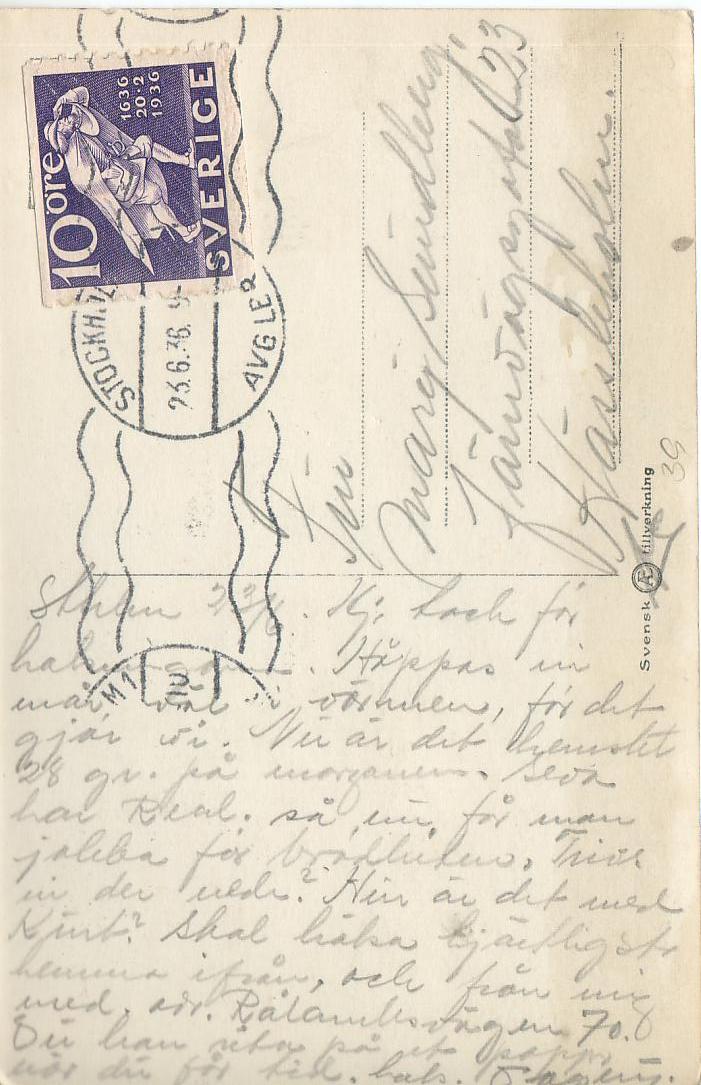 10 öre
1636
20·2
1936
SVERIGE
STOCKH.
23.6.36.
AVG LER
M1
Frk
Margit Sundberg
Järnvägsgatan 23
Hässleholm.
39
Svensk Æ tillverkning
Sthlm 23/6. Hj. tack för
hälsningarna. Hoppas ni
mår väl i värmen, för det
gjör vi. Nu är det hemskt
28 gr. på morgonen.
har Real. så nu får man
jobba för brödfödan. Trivs
ni der nede? Hur är det med
Kurt? Skal hälsa hjärtligste
hemma ifrån, och från mig
med. adr. Rålambsvägen 70.
Du kan rita på et papper
når du får tid. hels.